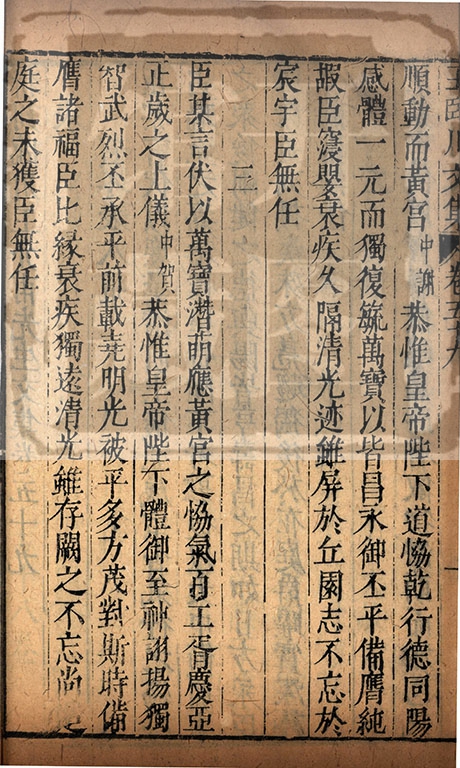 王臨川文集 卷五十九
順動而黃宮中謝恭惟皇帝陛下道恊乾行德同陽
感體一元而獨復毓萬寶以皆昌永御丕平備膺純
嘏臣寖嬰衰疾久隔清光迹雖屏於丘園志不忘於
宸宇臣無任
三
臣某言伏以萬寶潛萌應黃宮之恊氣百工胥慶亞
正歲之上儀中賀恭惟皇帝陛下體御至神誦揚獨
智武烈丕承平前載堯明光被平多方茂對斯時備
膺諸福臣比緣衰疾獨遠清光雖存闕之不忘尚
庭之未獲臣無任